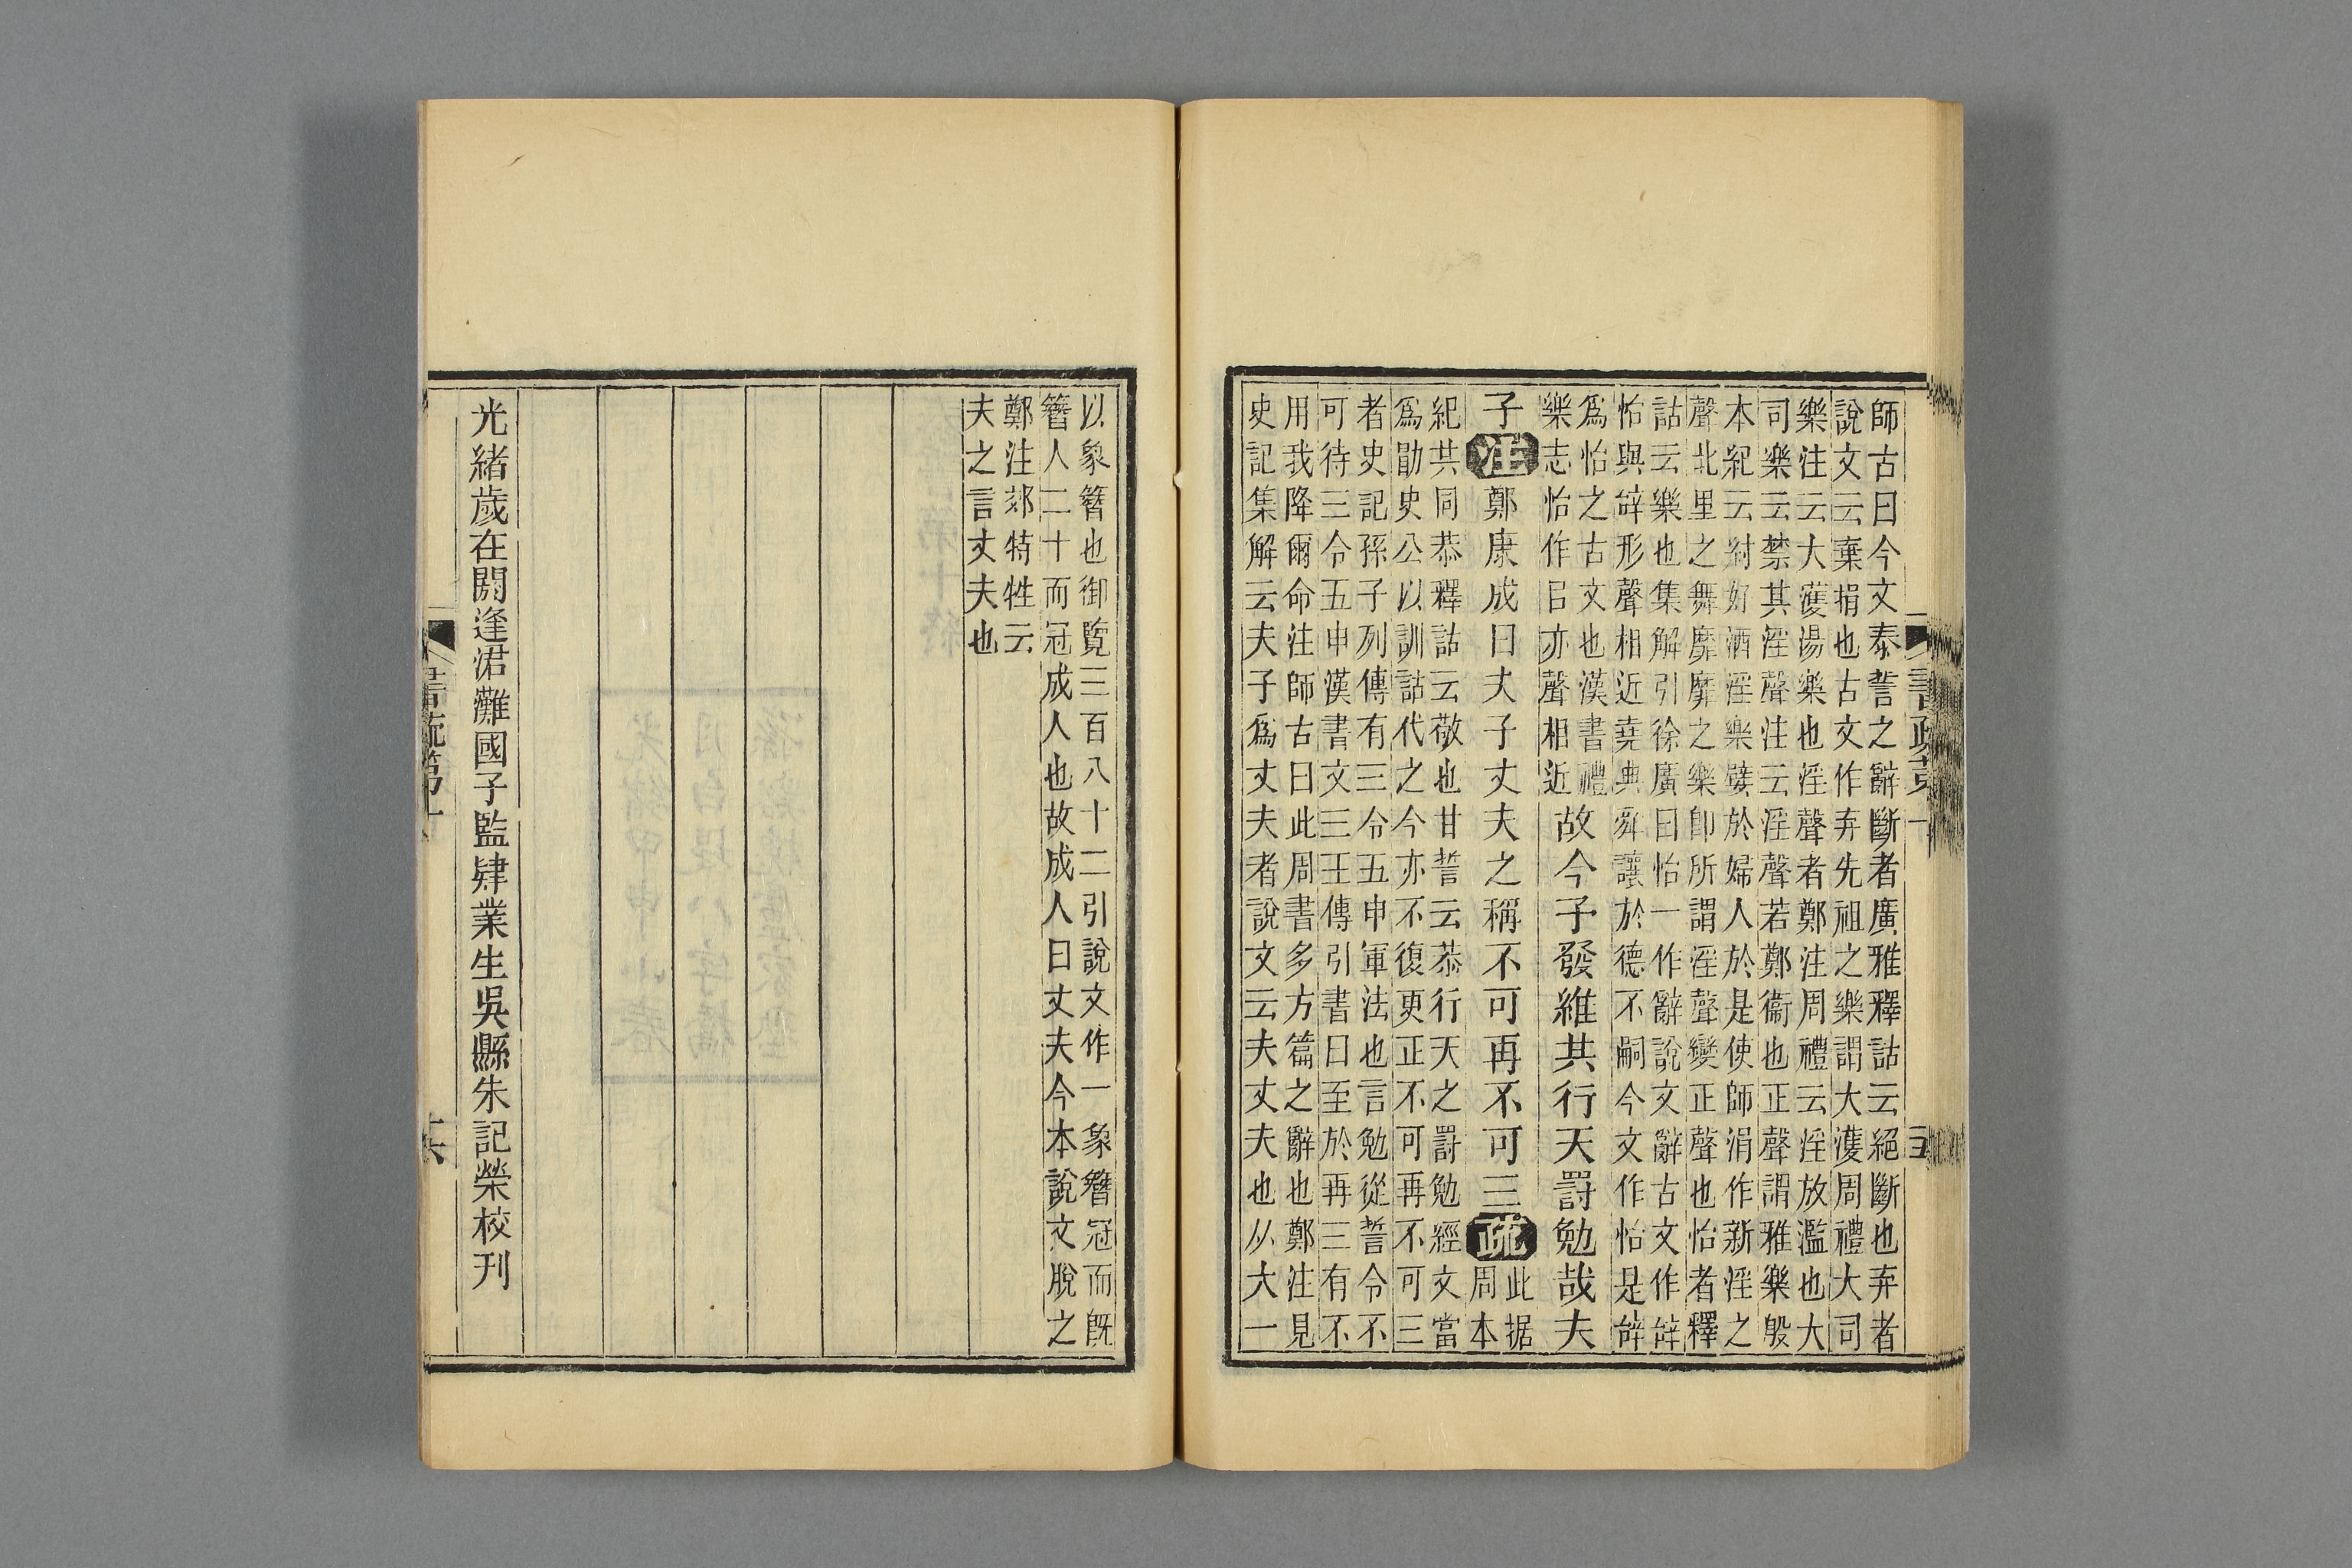 師古曰今文泰誓之辭斷者廣雅釋詁云絕斷也弃者
說文云棄捐也古文作弃先祖之樂謂大濩周禮大司
樂注云大濩湯樂也淫聲者鄭注周禮云淫放濫也大
司樂云禁其淫聲注云淫聲若鄭衞也正聲謂雅樂殷
本紀云紂好酒淫樂嬖於婦人於是使師涓作新淫之
聲北里之舞靡靡之樂卽所謂淫聲變正聲也怡者釋
詁云樂也集解引徐廣曰怡一作辭說文辭古文作辝
怡與辝形聲相近堯典舜讓於德不嗣今文作怡是辝
爲怡之古文也漢書禮
樂志怡作㠯亦聲相近
故今予發維共行天罰勉哉夫
子注鄭康成曰夫子丈夫之稱不可再不可三疏
此据
周本
紀共同恭釋詁云敬也甘誓云恭行天之罰勉經文當
爲勖史公以訓詁代之今亦不復更正不可再不可三
者史記孫子列傳有三令五申軍法也言勉從誓令不
可待三令五申漢書文三王傳引書曰至於再三有不
用我降爾命注師古曰此周書多方篇之辭也鄭注見
史記集解云夫子爲丈夫者說文云夫丈夫也从大一
以象簪也御覽三百八十二引說文作一象簪冠而旣
簪人二十而冠成人也故成人曰丈夫今本說文脫之
鄭注郊特牲云
夫之言丈夫也
光緒歲在閼逢涒灘國子監肄業生吳縣朱記榮校刊